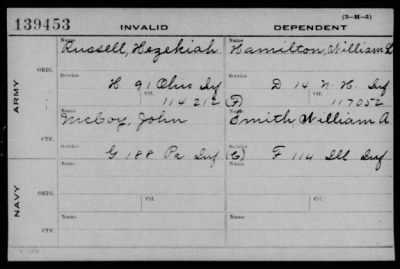 139453 INVALID DEPENDENT (3-H-3)
Name Name
Russell, Hezekiah Hamilton, William
ARMY
ORIG.
Service Service
H 91 Ohio Inf D 14 N. H. Inf
Ctf. Ctf.
114212 (F) 117052
Name Name
McCoy, John Smith, William A
CTF.
Service Service
G 188 Pa Inf (C) F 114 Ill Inf
NAVY
Name Name
ORIG.
Service Ctf. Service Ctf.
Name Name
CTF.
Service Service